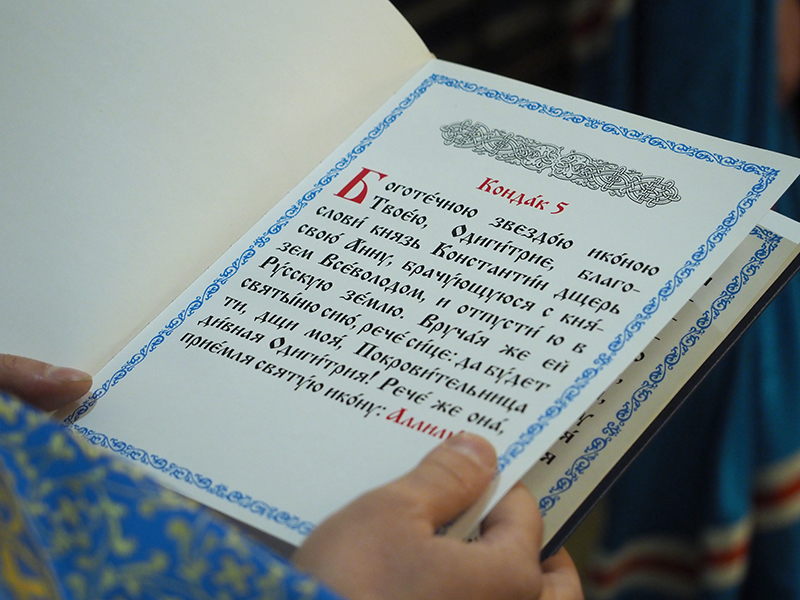 Конда́к 5
Боготе́чною звездо́ю ико́ною
Твое́ю, Одиги́трие, благо-
слови́ князь Константи́н дщерь
свою́ А́нну, брачу́ющуюся с кня-
зем Все́володом, и отпусти́ ю в
Ру́сскую зе́млю. Вруча́я же ей
святы́ню сию́, рече́ си́це: да бу́дет
ти, дщи моя́, Покрови́тельница
ди́вная Одиги́трия! Рече́ же она́,
прие́мля святу́ю ико́ну: